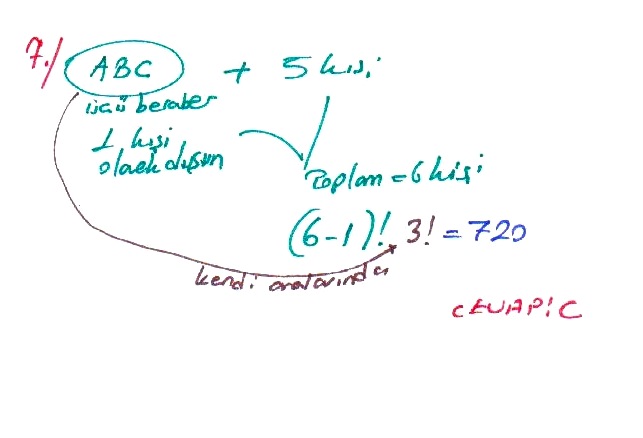 7./ ABC + 5 kişi
üçü beraber
1 kişi
olarak düşün
Toplam = 6 kişi
(6-1)! 3! = 720
kendi aralarında
CEVAP: C